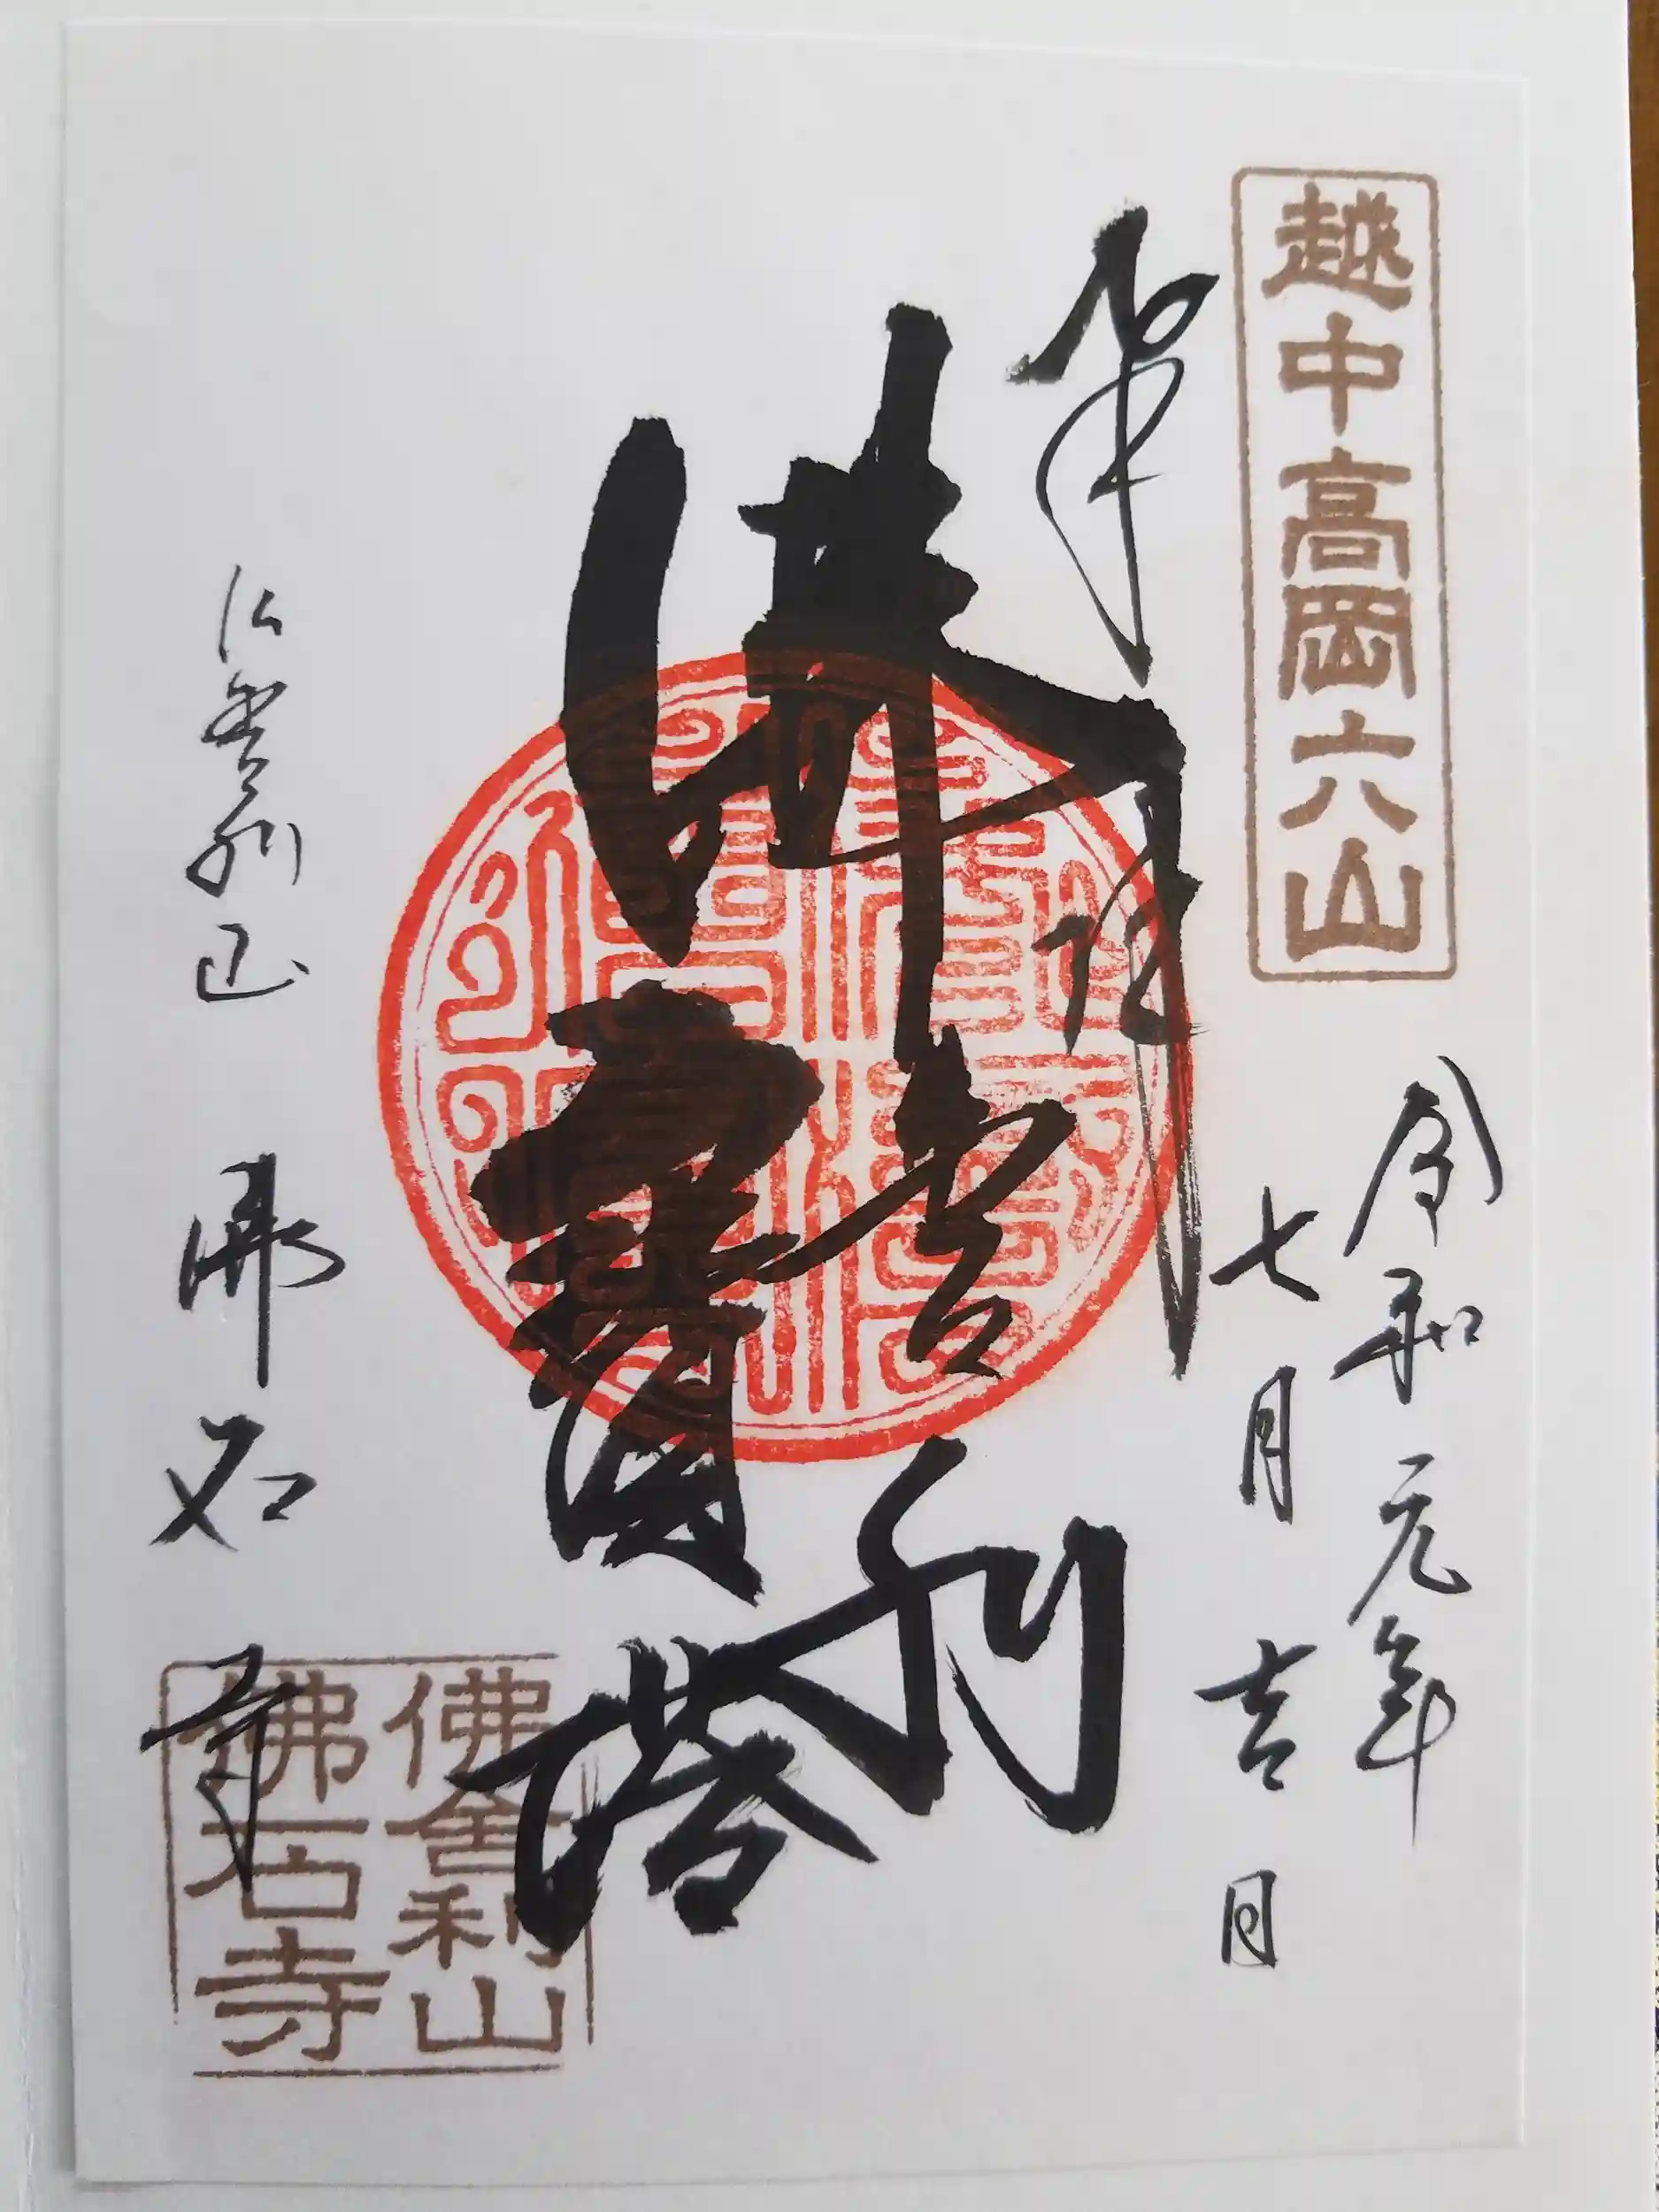 越中高岡六山
令和元年
七月吉日
奉拝
佛舎利
寳塔
仏舎利山 佛石寺
佛舎利山
佛石寺